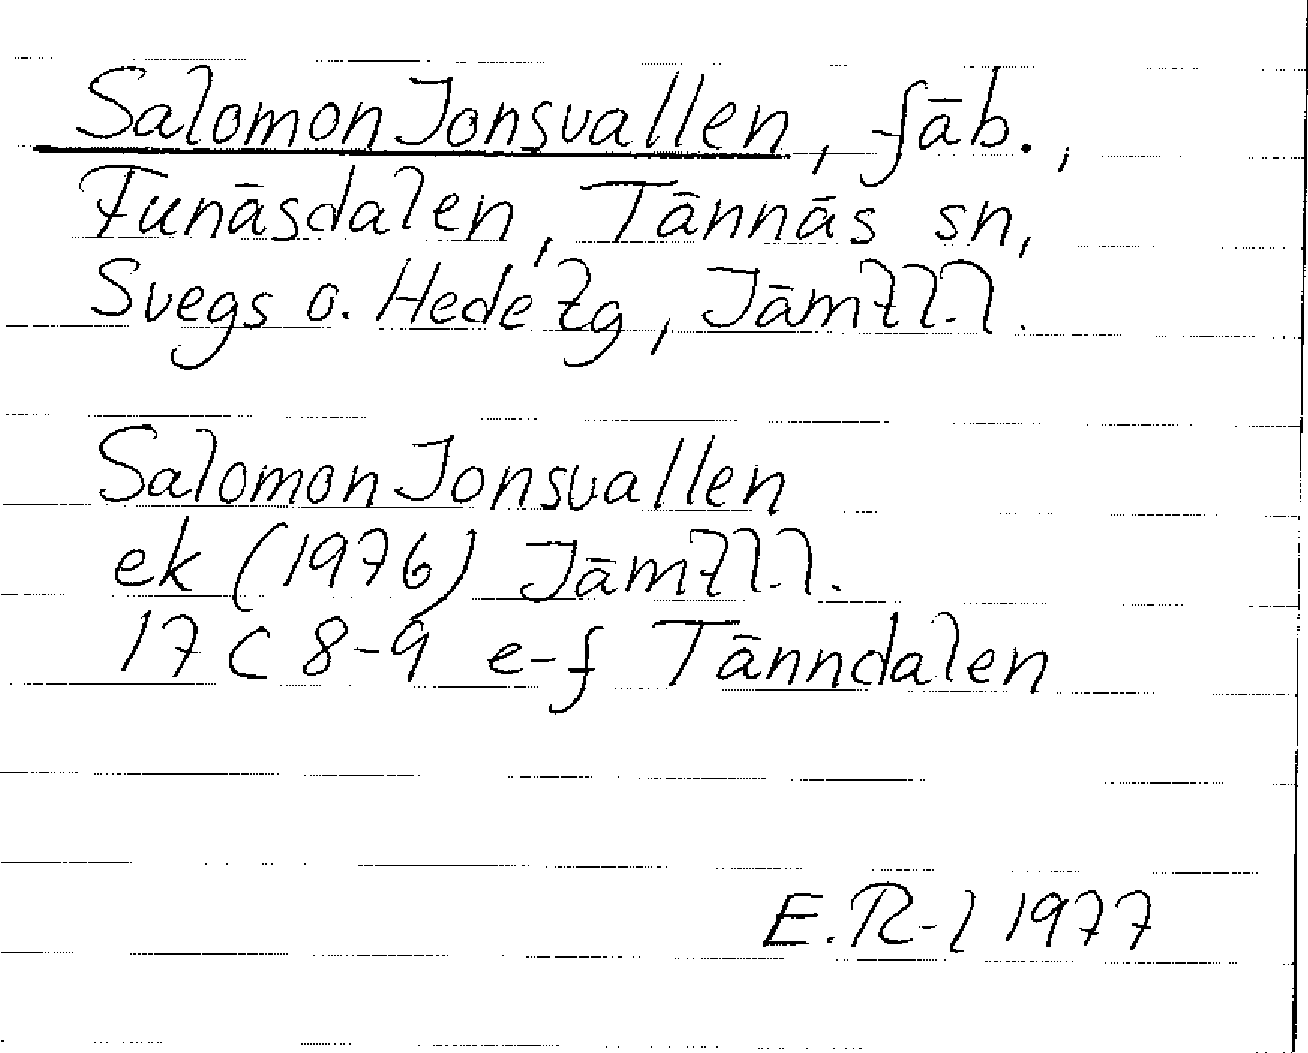 Salomon Jonsvallen, fäb.,
Funäsdalen, Tännäs sn,
Svegs o. Hede tg, Jämtl. l.
Salomon Jonsvallen
ek (1976) Jämtl. l.
17 C 8-9 e-f Tänndalen
E.R-l 1977